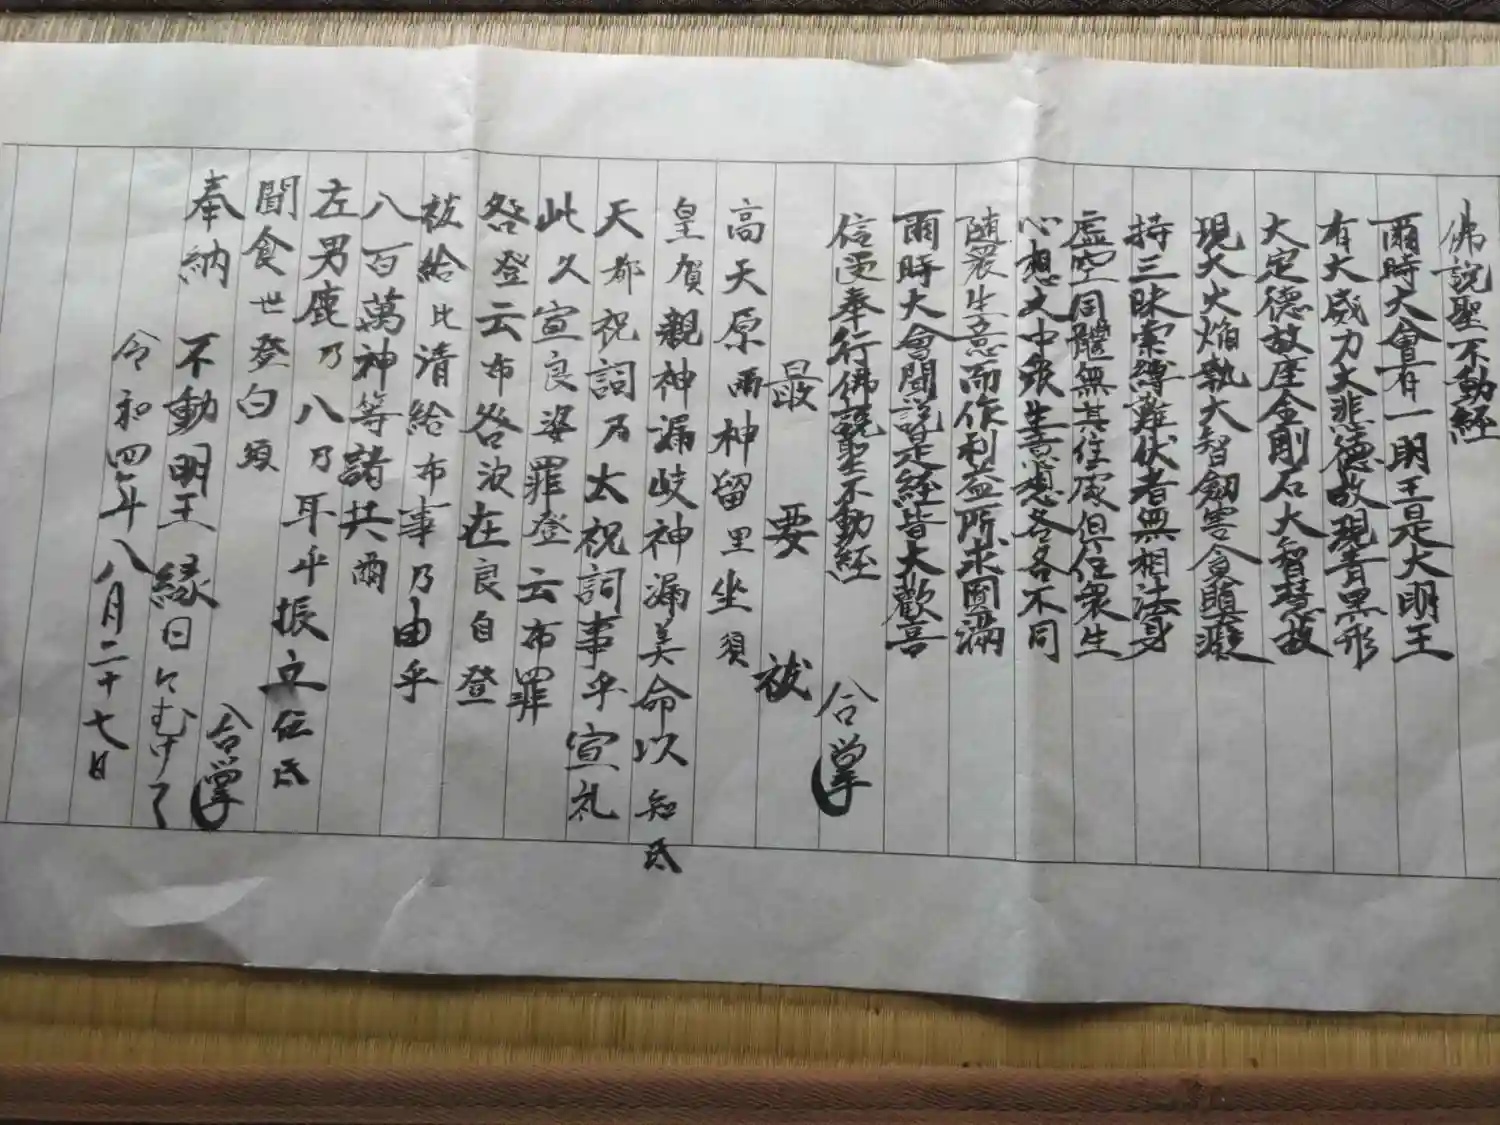 佛説聖不動経
爾時大會有一明王是大明王
有大威力大悲德故現青黒形
大定德故座金剛石大智慧故
現大火焔執大智劔害貪瞋癡
持三昧索縛難伏者無相法身
虚空同體無其住處但住衆生
心想之中衆生意想各各不同
随衆生意而作利益所求圓滿
爾時大會聞説是経皆大歡喜
信受奉行佛説聖不動経
合掌
最要祓
高天原爾神留里坐須
皇賀親神漏岐神漏美命以知氐
天都祝詞乃太祝詞事乎宣礼
此久宣良姿罪登云布罪
咎登云布咎波在良自登
祓給比清給布事乃由乎
八百萬神等諸共爾
左男鹿乃八乃耳乎振立氐
聞食世登白須
奉納 合掌
不動明王縁日
令和四年八月二十七日